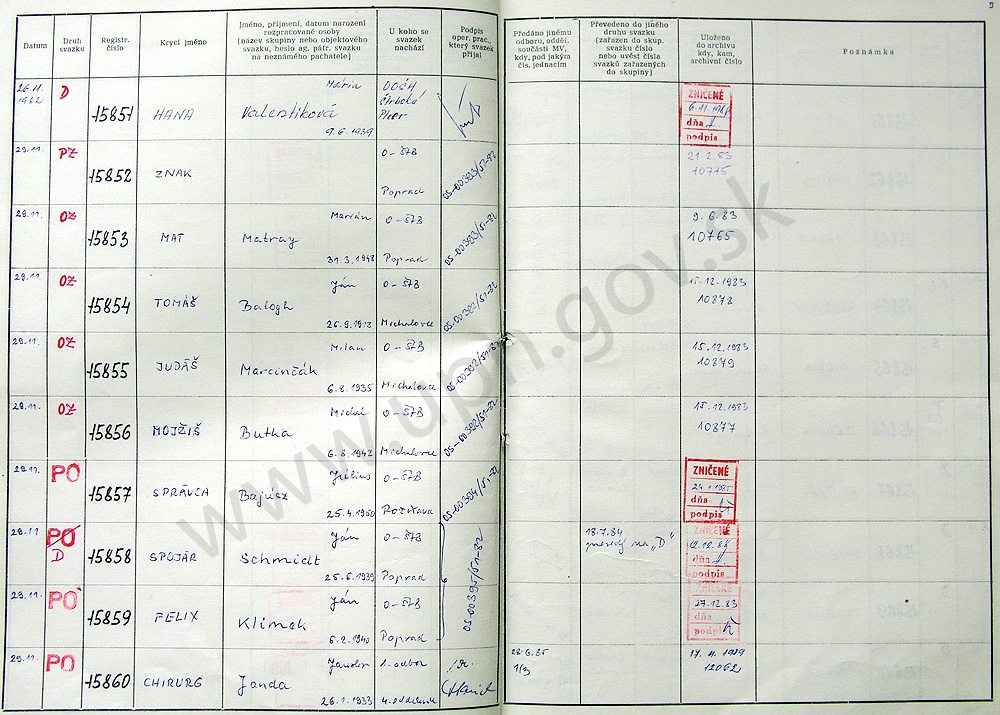 9
Datum
Druh svazku
Registr. číslo
Krycí jméno
Jméno, příjmení, datum narození
rozpracované osoby
(název skupiny nebo objektového
svazku, heslo ag. pátr. svazku
na neznámého pachatele)
U koho se
svazek
nachází
Podpis
oper. prac.,
který svazek
přijal
Předáno jinému
odboru, odděl.
součásti MV,
kdy, pod jakým
čís. jednacím
Převedeno do jiného
druhu svazku
(zařazen do skup.
svazku číslo
nebo uvést čísla
svazků zařazených
do skupiny)
Uloženo
do archivu
kdy, kam,
archivní číslo
Poznámka
26.11. 1982 D 15851 HANA Mária Valentíková 9.6.1939
ZNIČENÉ
dňa
podpis
29.11. PZ 15852 ZNAK O-ŠtB Poprad 05-00393/51-82 21.2.83 10715
29.11. OZ 15853 MAT Marián Matray 31.3.1948 O-ŠtB Poprad 05-00393/51-82 9.6.83 10765
29.11. OZ 15854 TOMÁŠ Ján Balogh 26.9.1918 O-ŠtB Michalovce 05-00392/51-82 15.12.1983 10878
29.11. OZ 15855 JUDÁŠ Milan Marcinčák 6.8.1935 O-ŠtB Michalovce 05-00392/51-82 15.12.1983 10879
29.11. OZ 15856 MOJŽIŠ Michal Butka 6.8.1942 O-ŠtB Michalovce 05-00392/51-82 15.12.1983 10877
29.11. PO 15857 SPRÁVCA Július Bajúsz 25.4.1950 O-ŠtB Rožňava 05-00394/51-82
ZNIČENÉ
24.1.1985
dňa
podpis
29.11 PO D 15858 SPOJÁR Ján Schmidt 25.5.1939 O-ŠtB Poprad 05-00395/51-82 18.7.84 na „D"
ZNIČENÉ
dňa
podpis
29.11. PO 15859 FELIX Ján Klimek 5.2.1940 O-ŠtB Poprad
ZNIČENÉ
27.12.83
dňa
podpis
29.11. PO 15860 CHIRURG Jaroslav Janda 26.1.1933 1. odbor 4. oddelenie 28.6.85 1/3 17.11.1989 12062
www.upn.gov.sk